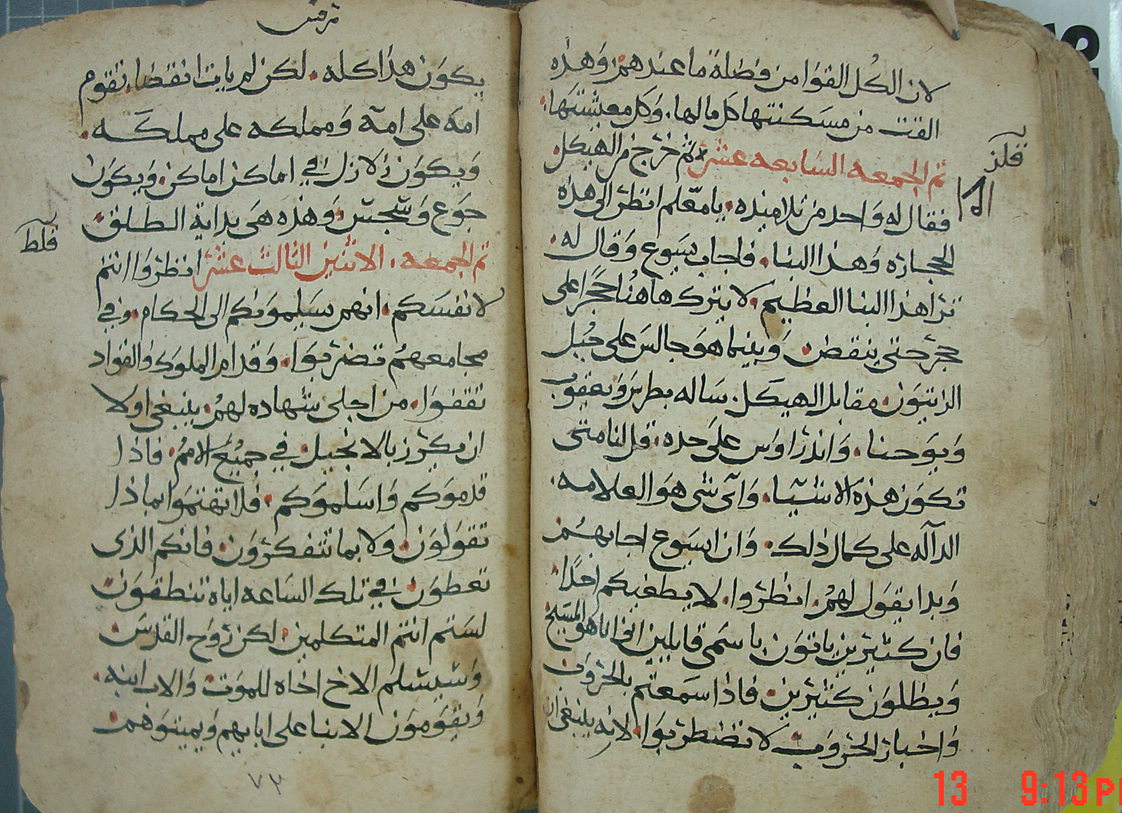 لان الكل القوا من فضلة ما عندهم. وهذه
القت من مسكنتها كل مالها. وكل معيشتها.
تم الجمعه السابعه عشر ثم خرج من الهيكل
فقال له واحد من تلاميذه. يا معلم انظر الى هذه
الحجاره وهذا البنا. فاجاب يسوع وقال له.
ترا هذا البنا العظيم. لا يترك هاهنا حجرا على
حجر حتى ينقض وبينما هو جالس على جبل
الزيتون مقابل الهيكل. ساله بطرس ويعقوب
ويوحنا. واندراوس على حده. قل لنا متى
تكون هذه الاشيا. واى شى هو العلامه.
الداله على كمال ذلك. وان ايسوع اجابهم
وبدا يقول لهم. انظروا. لا يطغيكم احدا.
فان كثيرين ياتون باسمى قايلين انى انا هو المسيح
ويطلون كثيرين. فاذا سمعتم بالحروب
واخبار الحروب لا تضطربوا. لانه ينبغى ان
مرقس
يكون هذا كله. لكن لم يات انقضا. تقوم
امه على امة ومملكه على مملكه.
ويكون زلازل فى اماكن اماكن. ويكون
جوع وسجس. وهذه هى بداية الطلق
تم الجمعه. الاثنين الثالث عشر انظروا انتم
لانفسكم. انهم يسلمونكم الى الحكام. وفى
مجامعهم تضربوا. وقدام الملوك والقواد
تقفوا. من اجلى شهاده لهم. ينبغى اولا
ان يكرز بالانجيل. فى جميع الامم. فاذا
قدموكم واسلموكم. فلا تهتموا بماذا
تقولون ولا بما تتفكرون. فانكم الذى
تعطون فى تلك الساعه اياه تنطقون
لستم انتم المتكلمين. لكن روح القدس
وسيسلم الاخ اخاه للموت والاب ابنه.
ويقومون الابنا على ابايهم ويميتوهم
٧٣
13 9:13 P